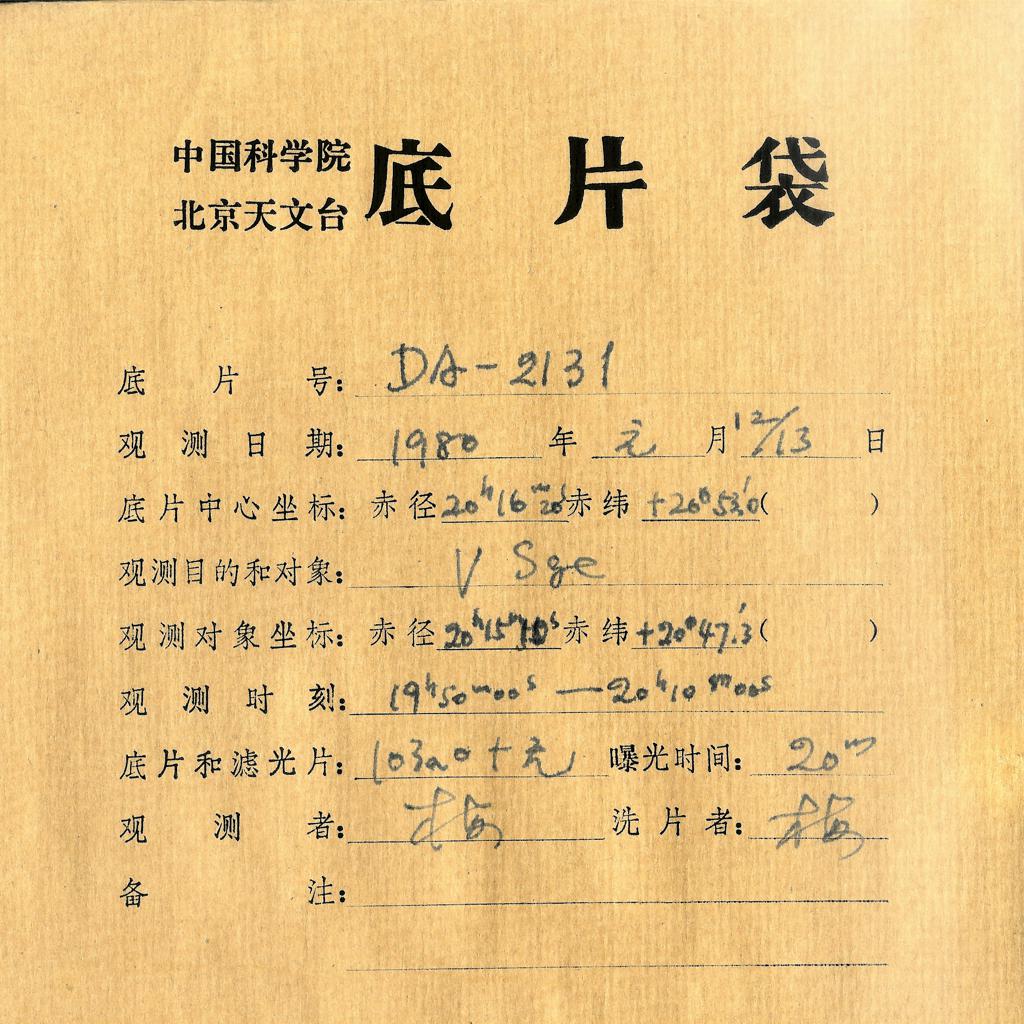 中国科学院
北京天文台
底片袋
底片号：DA-2131
观测日期：1980年 元月12/13日
底片中心坐标：赤径20ʰ16ᵐ20ˢ赤纬+20°53.'0( )
观测目的和对象：V Sge
观测对象坐标：赤径20ʰ15ᵐ 赤纬+20°47.'3( )
观测时刻：19ʰ50ᵐ00ˢ—20ʰ10ᵐ00ˢ
底片和滤光片：103aO+无 曝光时间：20ᵐ
观测者：梅 洗片者：梅
备注：